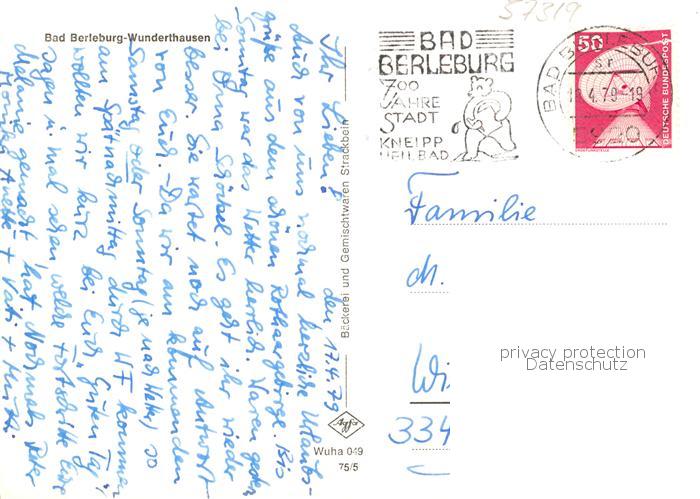 57319
Bad Berleburg-Wunderthausen
BAD
BERLEBURG
700
JAHRE
STADT
KNEIPP
HEILBAD
BAD BERLEBURG
4.79-18
50
DEUTSCHE BUNDESPOST
den 17.4.79
Ihr Lieben!
Auch von uns nochmal herzliche Urlaubs-
grüße aus dem schönen Rothaargebirge. Bis
Sonntag war das Wetter herrlich. Waren gestern
bei Anna Schöbel. Es geht ihr wieder
besser. Sie wartet noch auf Antwort
von Euch. Da wir am kommenden
Samstag oder Sonntag (je nach Wetter) so
am Spätnachmittag durch HF kommen
wollen wir kurz bei Euch "Guten Tag"
sagen u. mal sehen, welche Fortschritte Eure
Melanie gemacht hat. Nochmals Peter
Monika Anette + Kati +
Bäckerei und Gemischtwaren Strackbein
Agfa
Wuha 049
75/5
Familie
M.
Wi
334
privacy protection
Datenschutz